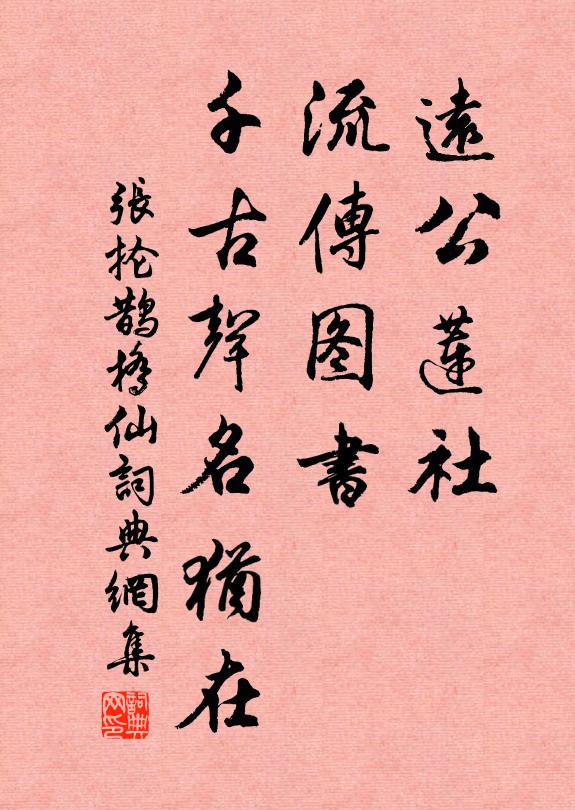 遠公蓮社
流傳图書
千古聲名猶在
張抡鵲橋仙詞典網集
詞典网印